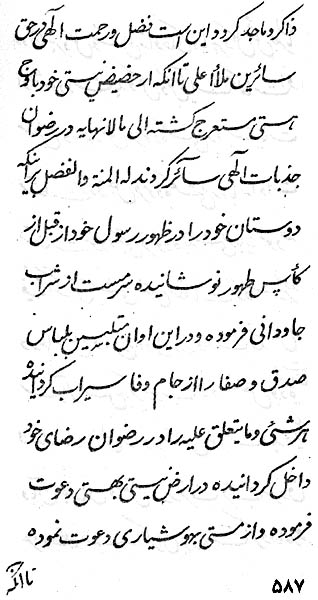 ذاکر و ماجد کردد و این است فضل و رحمت الهی در حق
سائرین ملأ اعلی تا آنکه از حضیض نیستی خود باوج
هستی متعرج کشته الی مالانهایه در رضوان
جذبات الهی سائر کردند له المنة والفضل بر آنکه
دوستان خود را در ظهور رسول خود از قبل از
کأس طهور نوشانیده سرمست از شراب
جاودانی فرموده و در این اوان متلبسین بلباس
صدق و صفا را از جام وفا سیراب کردانیده
هر شئ و ما یتعلق علیه را در رضوان رضای خود
داخل کردانیده در ارض نیستی بهستی دعوت
فرموده و از مستی بهوشیاری دعوت نموده
تا آنکه
۵۸۷